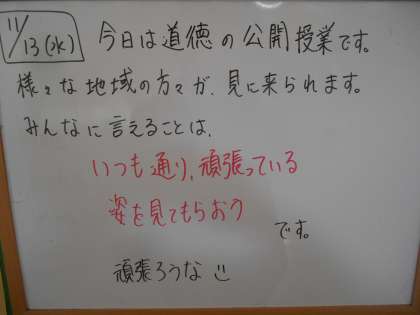 11/13(水) 今日は道徳の公開授業です。
様々な地域の方々が、見に来られます。
みんなに言えることは、
いつも通り、頑張っている
姿を見てもらおう
です。
頑張ろうな